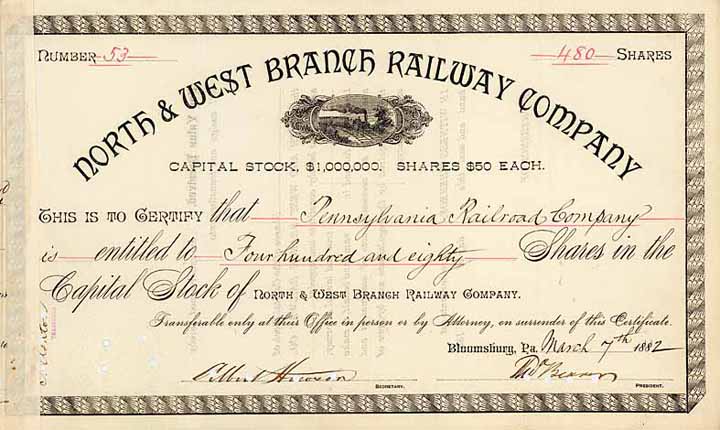 NUMBER 53 480 SHARES
NORTH & WEST BRANCH RAILWAY COMPANY
CAPITAL STOCK, $1,000,000. SHARES $50 EACH.
THIS IS TO CERTIFY that Pennsylvania Railroad Company
is entitled to Four hundred and eighty Shares in the
Capital Stock of NORTH & WEST BRANCH RAILWAY COMPANY.
Transferable only at their Office in person or by Attorney, on surrender of this Certificate.
Bloomsburg, Pa. March 7th 1882
SECRETARY. PRESIDENT.